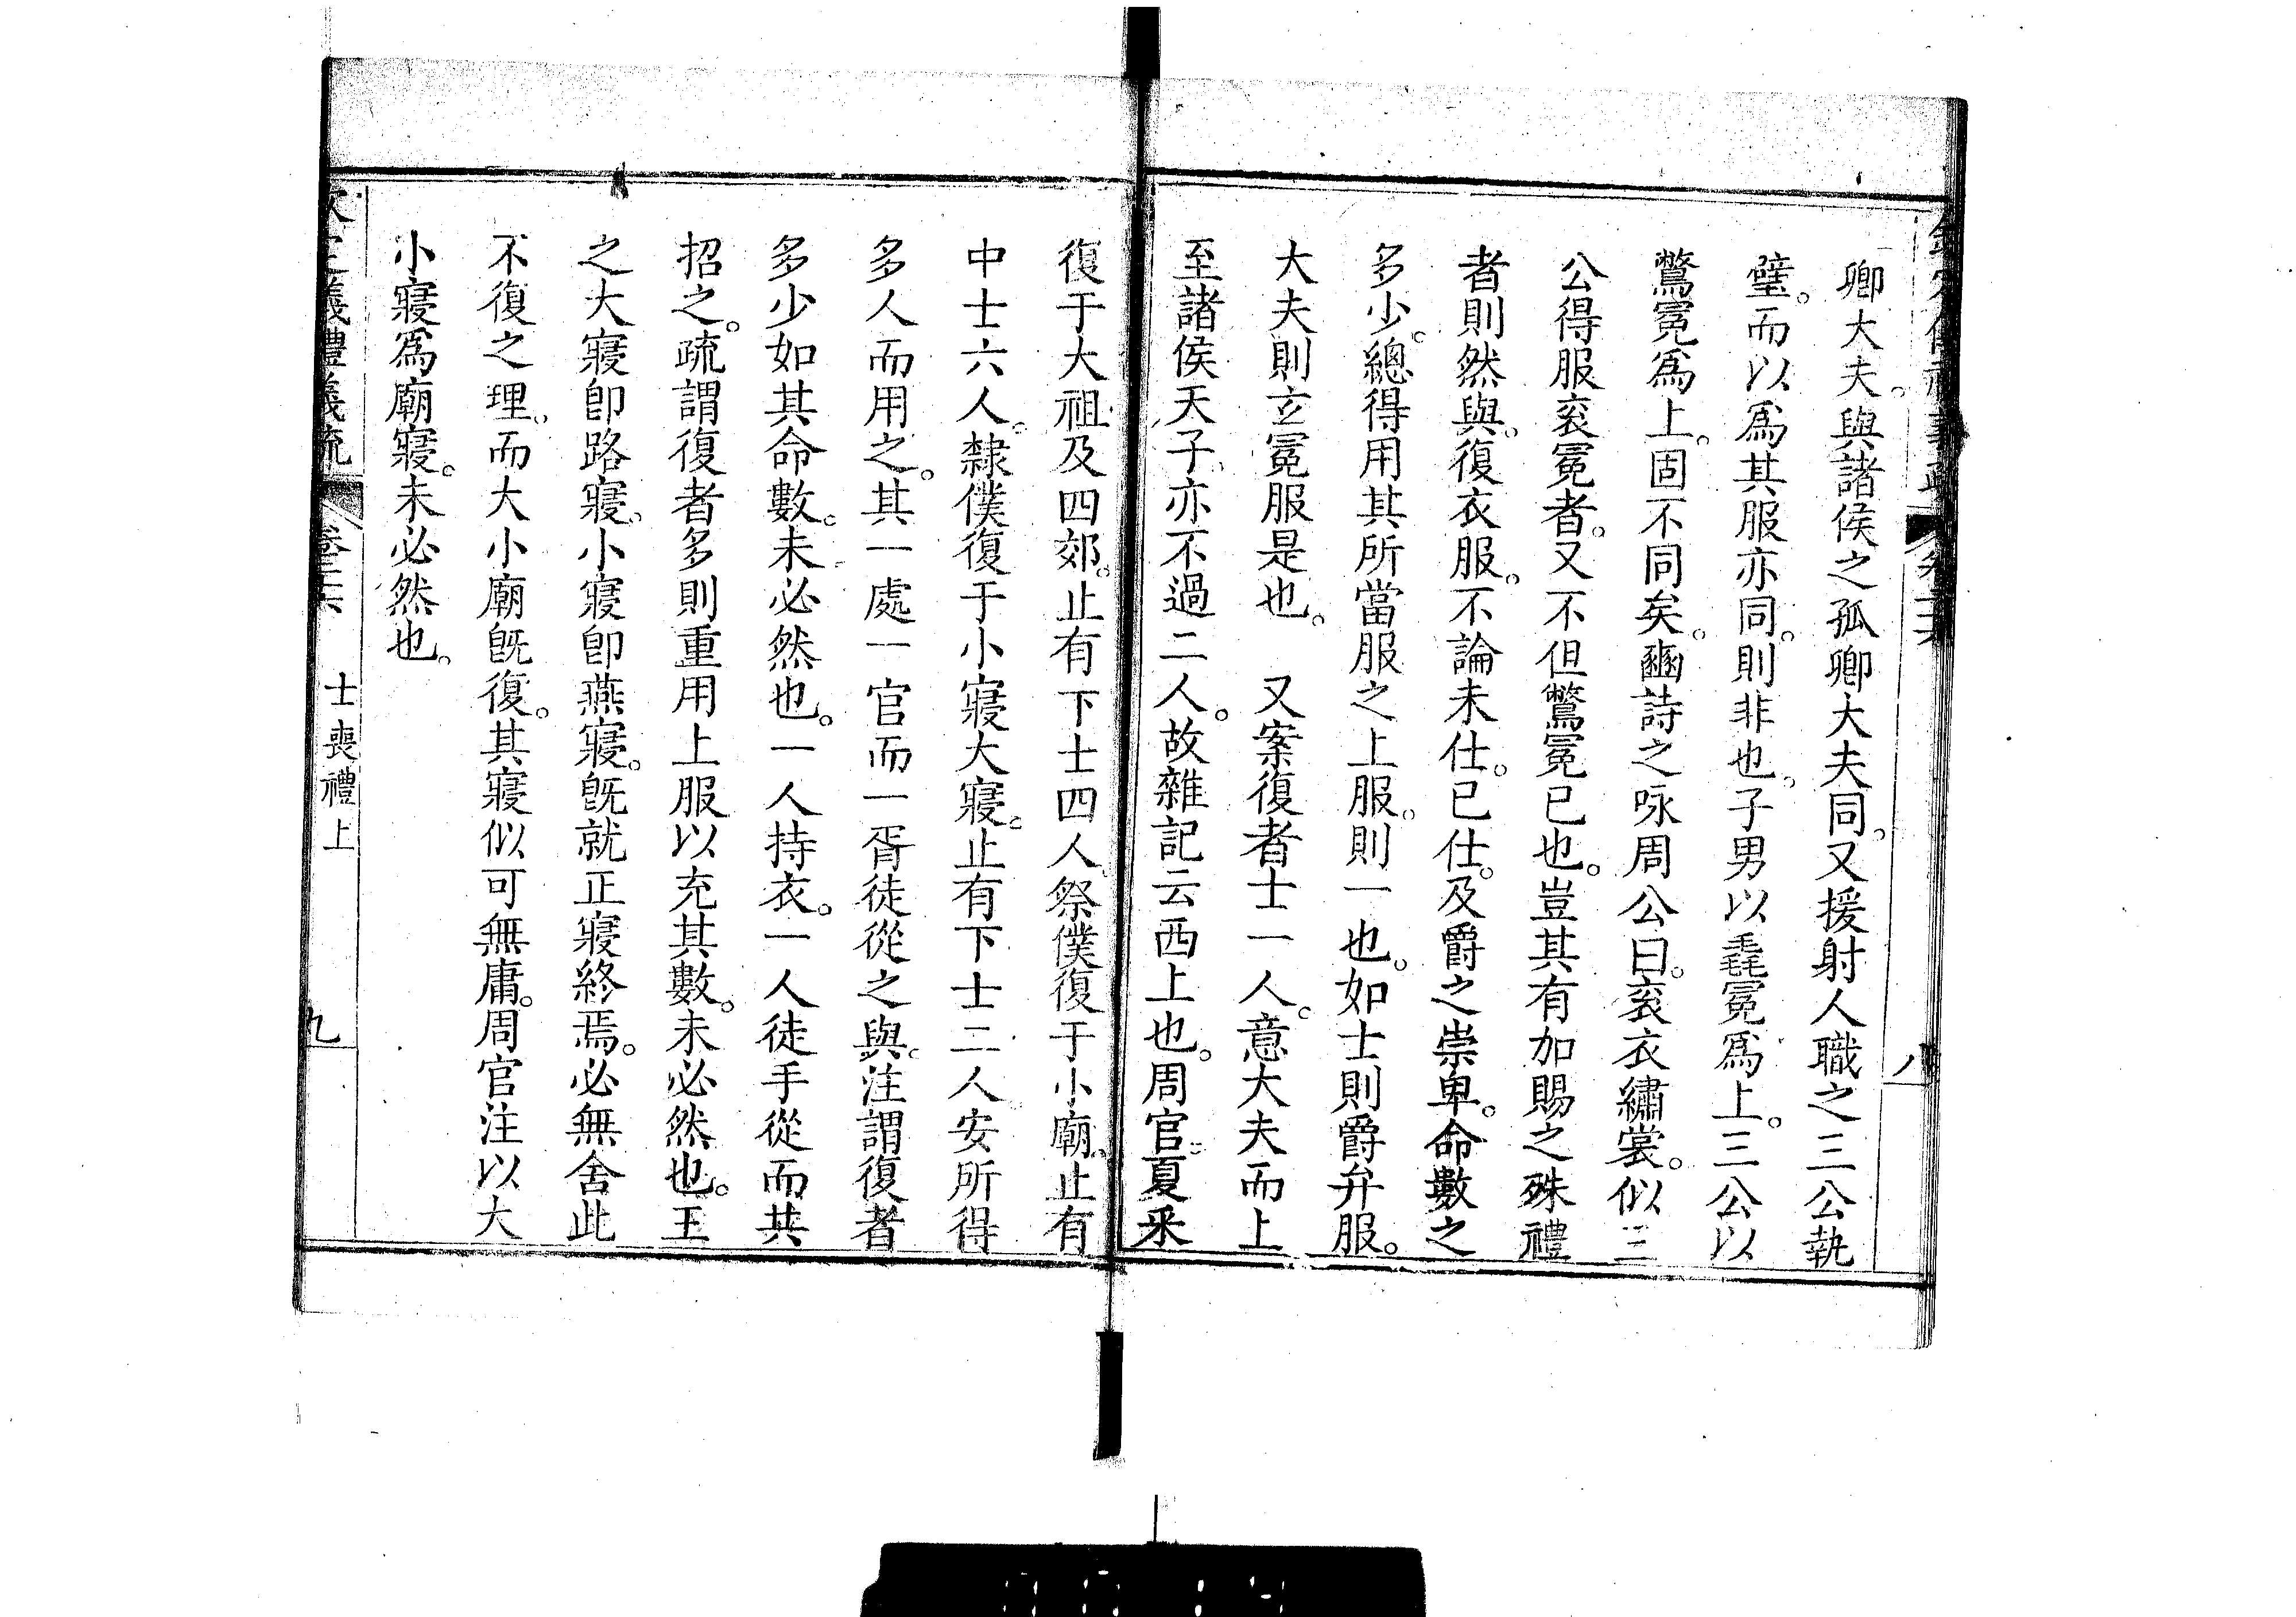 卿大夫。與諸侯之孤卿大夫同。又援射人職之三公執
璧。而以爲其服亦同。則非也。子男以毳冕爲上。三公以
鷩冕爲上。固不同矣。豳詩之咏周公曰。袞衣繡裳。似三
公得服袞冕者。又不但鷩冕已也。豈其有加賜之殊禮
者則然與。復衣服。不論未仕。已仕。及爵之崇卑。命數之
多少。總得用其所當服之上服。則一也。如士則爵弁服。
大夫則玄冕服是也。　又案復者士一人。意大夫而上
至諸侯天子。亦不過二人。故雜記云西上也。周官。夏采
復于大祖及四郊。止有下士四人。祭僕復于小廟。止有
中士六人。隸僕復于小寢大寢。止有下士二人。安所得
多人而用之。其一處一官而一胥徒從之與。注謂復者
多少如其命數。未必然也。一人持衣。一人徒手從而共
招之。疏謂復者多則重用上服以充其數。未必然也。王
之大寢卽路寢。小寢卽燕寢。旣就正寢終焉。必無舍此
不復之理。而大小廟旣復。其寢似可無庸。周官注以大
小寢爲廟寢。未必然也。
士喪禮上
九